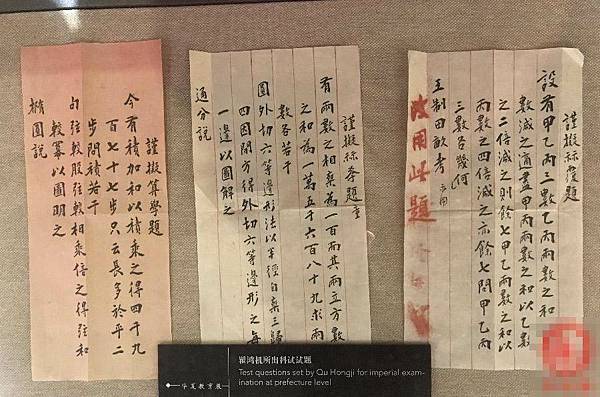 謹擬覆題
設有甲乙丙三數乙丙兩數之和以甲
數減之適盡甲丙兩數之和以乙數
之二倍減之則餘七甲乙兩數之和以
丙數之四倍減之亦餘七問甲乙丙
三數各幾何
王制田畝考
改用此題
謹擬題
有兩數之相乘為一百而其兩立方數
之和為一萬五千六百八十九求兩
數各若干
圓外切六等邊形法以半徑自乘三歸
四因開方得外切六等邊形之每
一邊以圖解之
通分說
謹擬算學題
今有積加和以積乘之得四千九
百七十七步只云長多於平二
步問積若干
勾弦較股弦較相乘倍之得弦和
較冪以圖明之
橢圓說
华夏教育展
瞿鸿机所出科试试题
Test questions set by Qu Hongji for imperial exam-
ination at prefecture level